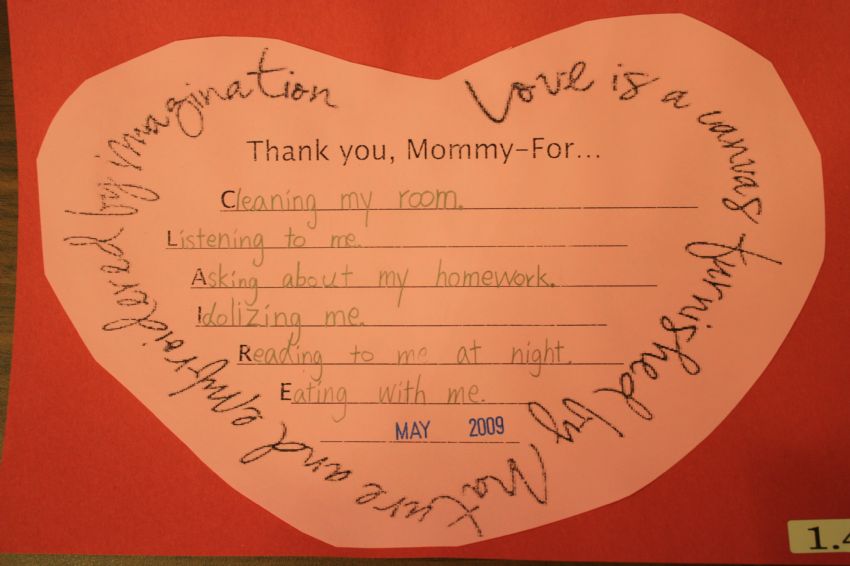 Love is a canvas furnished by Nature and embroidered by imagination
Thank you, Mommy–For...
Cleaning my room.
Listening to me.
Asking about my homework.
Idolizing me.
Reading to me at night.
Eating with me.
MAY 2009
1.4